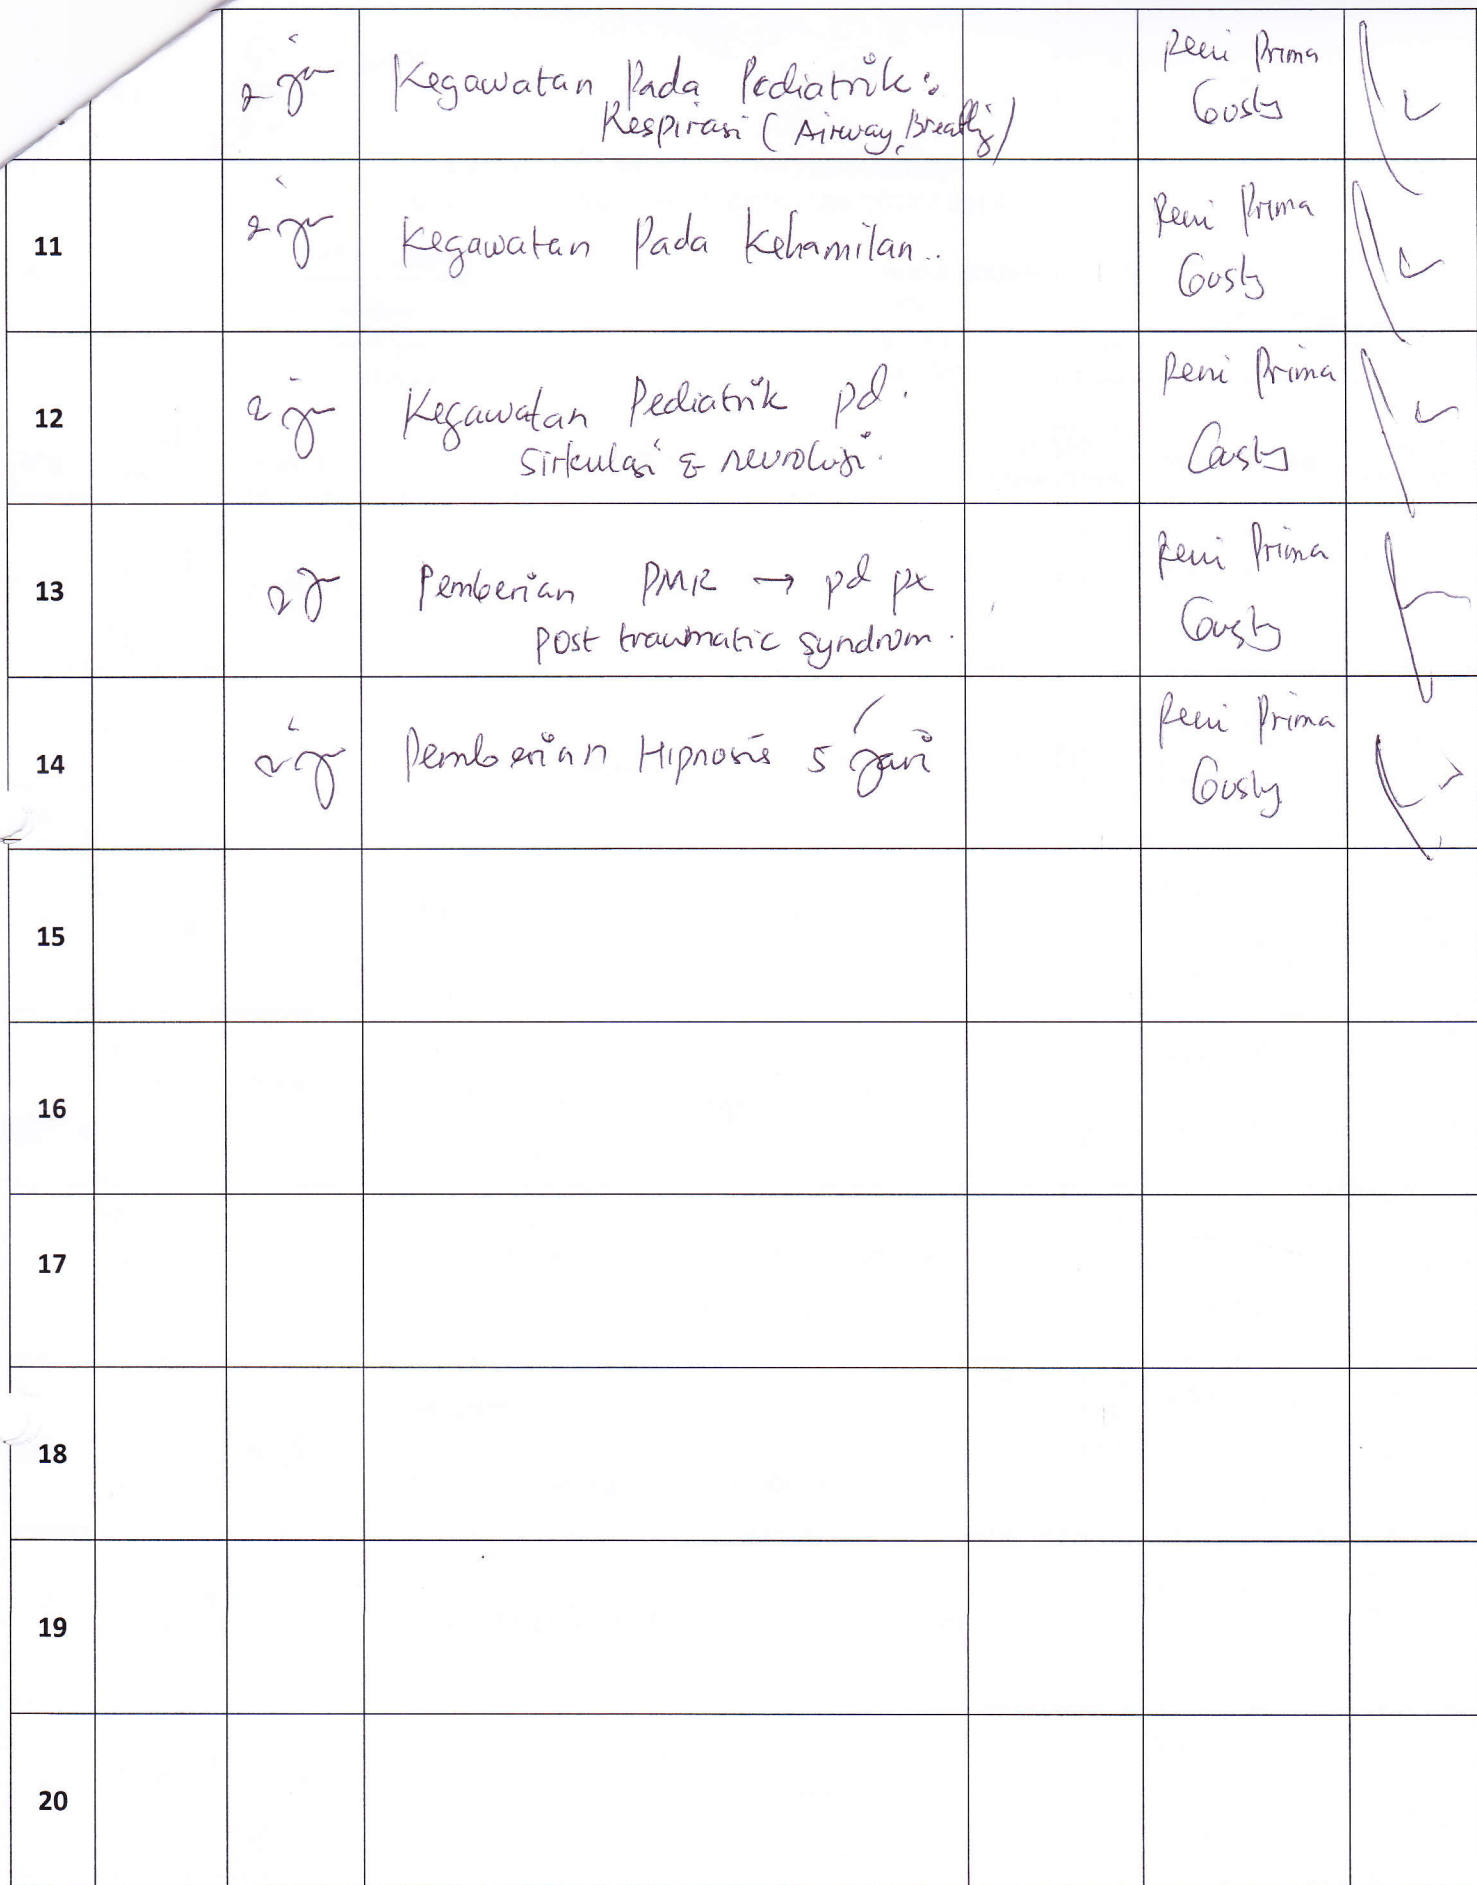 Kegawatan Pada Pediatrik :
Respirasi (Airway, Breathg)
Reni Prima
Gusty
11
Kegawatan Pada Kehamilan..
Reni Prima
Gusty
12
Kegawatan Pediatrik pd.
Sirkulasi & neurologi.
Reni Prima
Gusty
13
Pemberian PMR → pd px
post traumatic syndrom.
Reni Prima
Gusty
14
Pemberian Hipnosis 5 jari
Reni Prima
Gusty
15
16
17
18
19
20